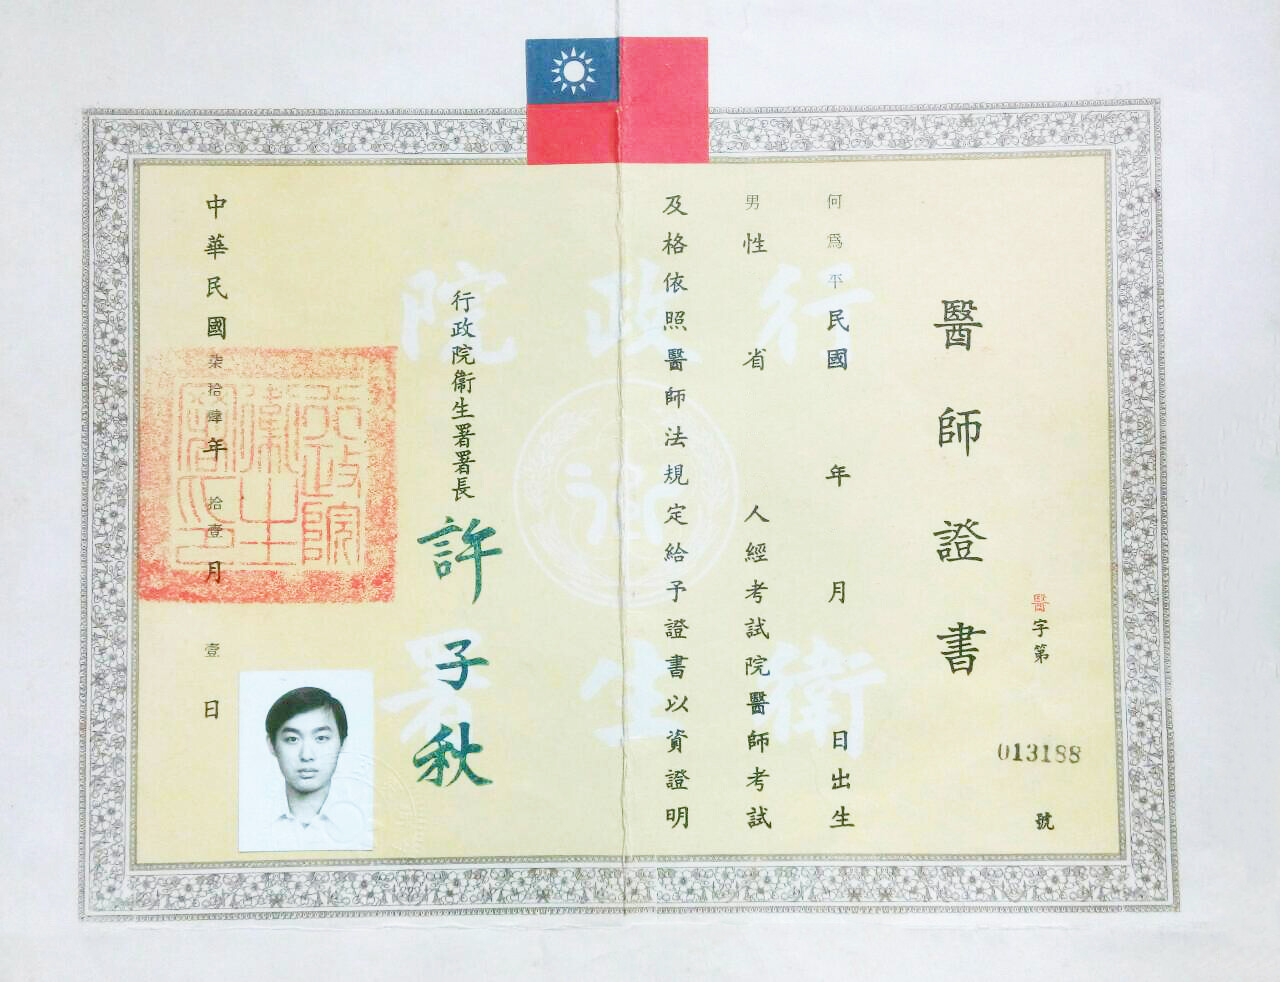 醫師證書
醫字第
013188
號
何為平民國 年 月 日出生
男性 省 人經考試院醫師考試
及格依照醫師法規定給予證書以資證明
行政院衞生署署長
許子秋
中華民國柒拾肆年拾壹月壹日
行政院
衞生署
行政院
衞生
署印